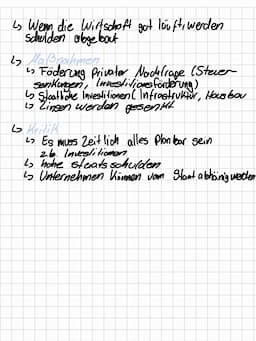 ↳ Wenn die Wirtschaft gut läuft, werden
schulden abgebaut
↳ Maßnahmen
↳ Föderung Privater Nachfrage (Steuer-
senkungen, Investitionsförderung)
↳ Staatliche Investitionen (Infrastruktur, Hausbau
↳ Zinsen werden gesenkt
↳ Kritik
↳ Es muss Zeitlich alles Planbar sein
z.b. Investitionen
↳ hohe staatsschulden
↳ Unternehmen können vom Staat abhänig werden